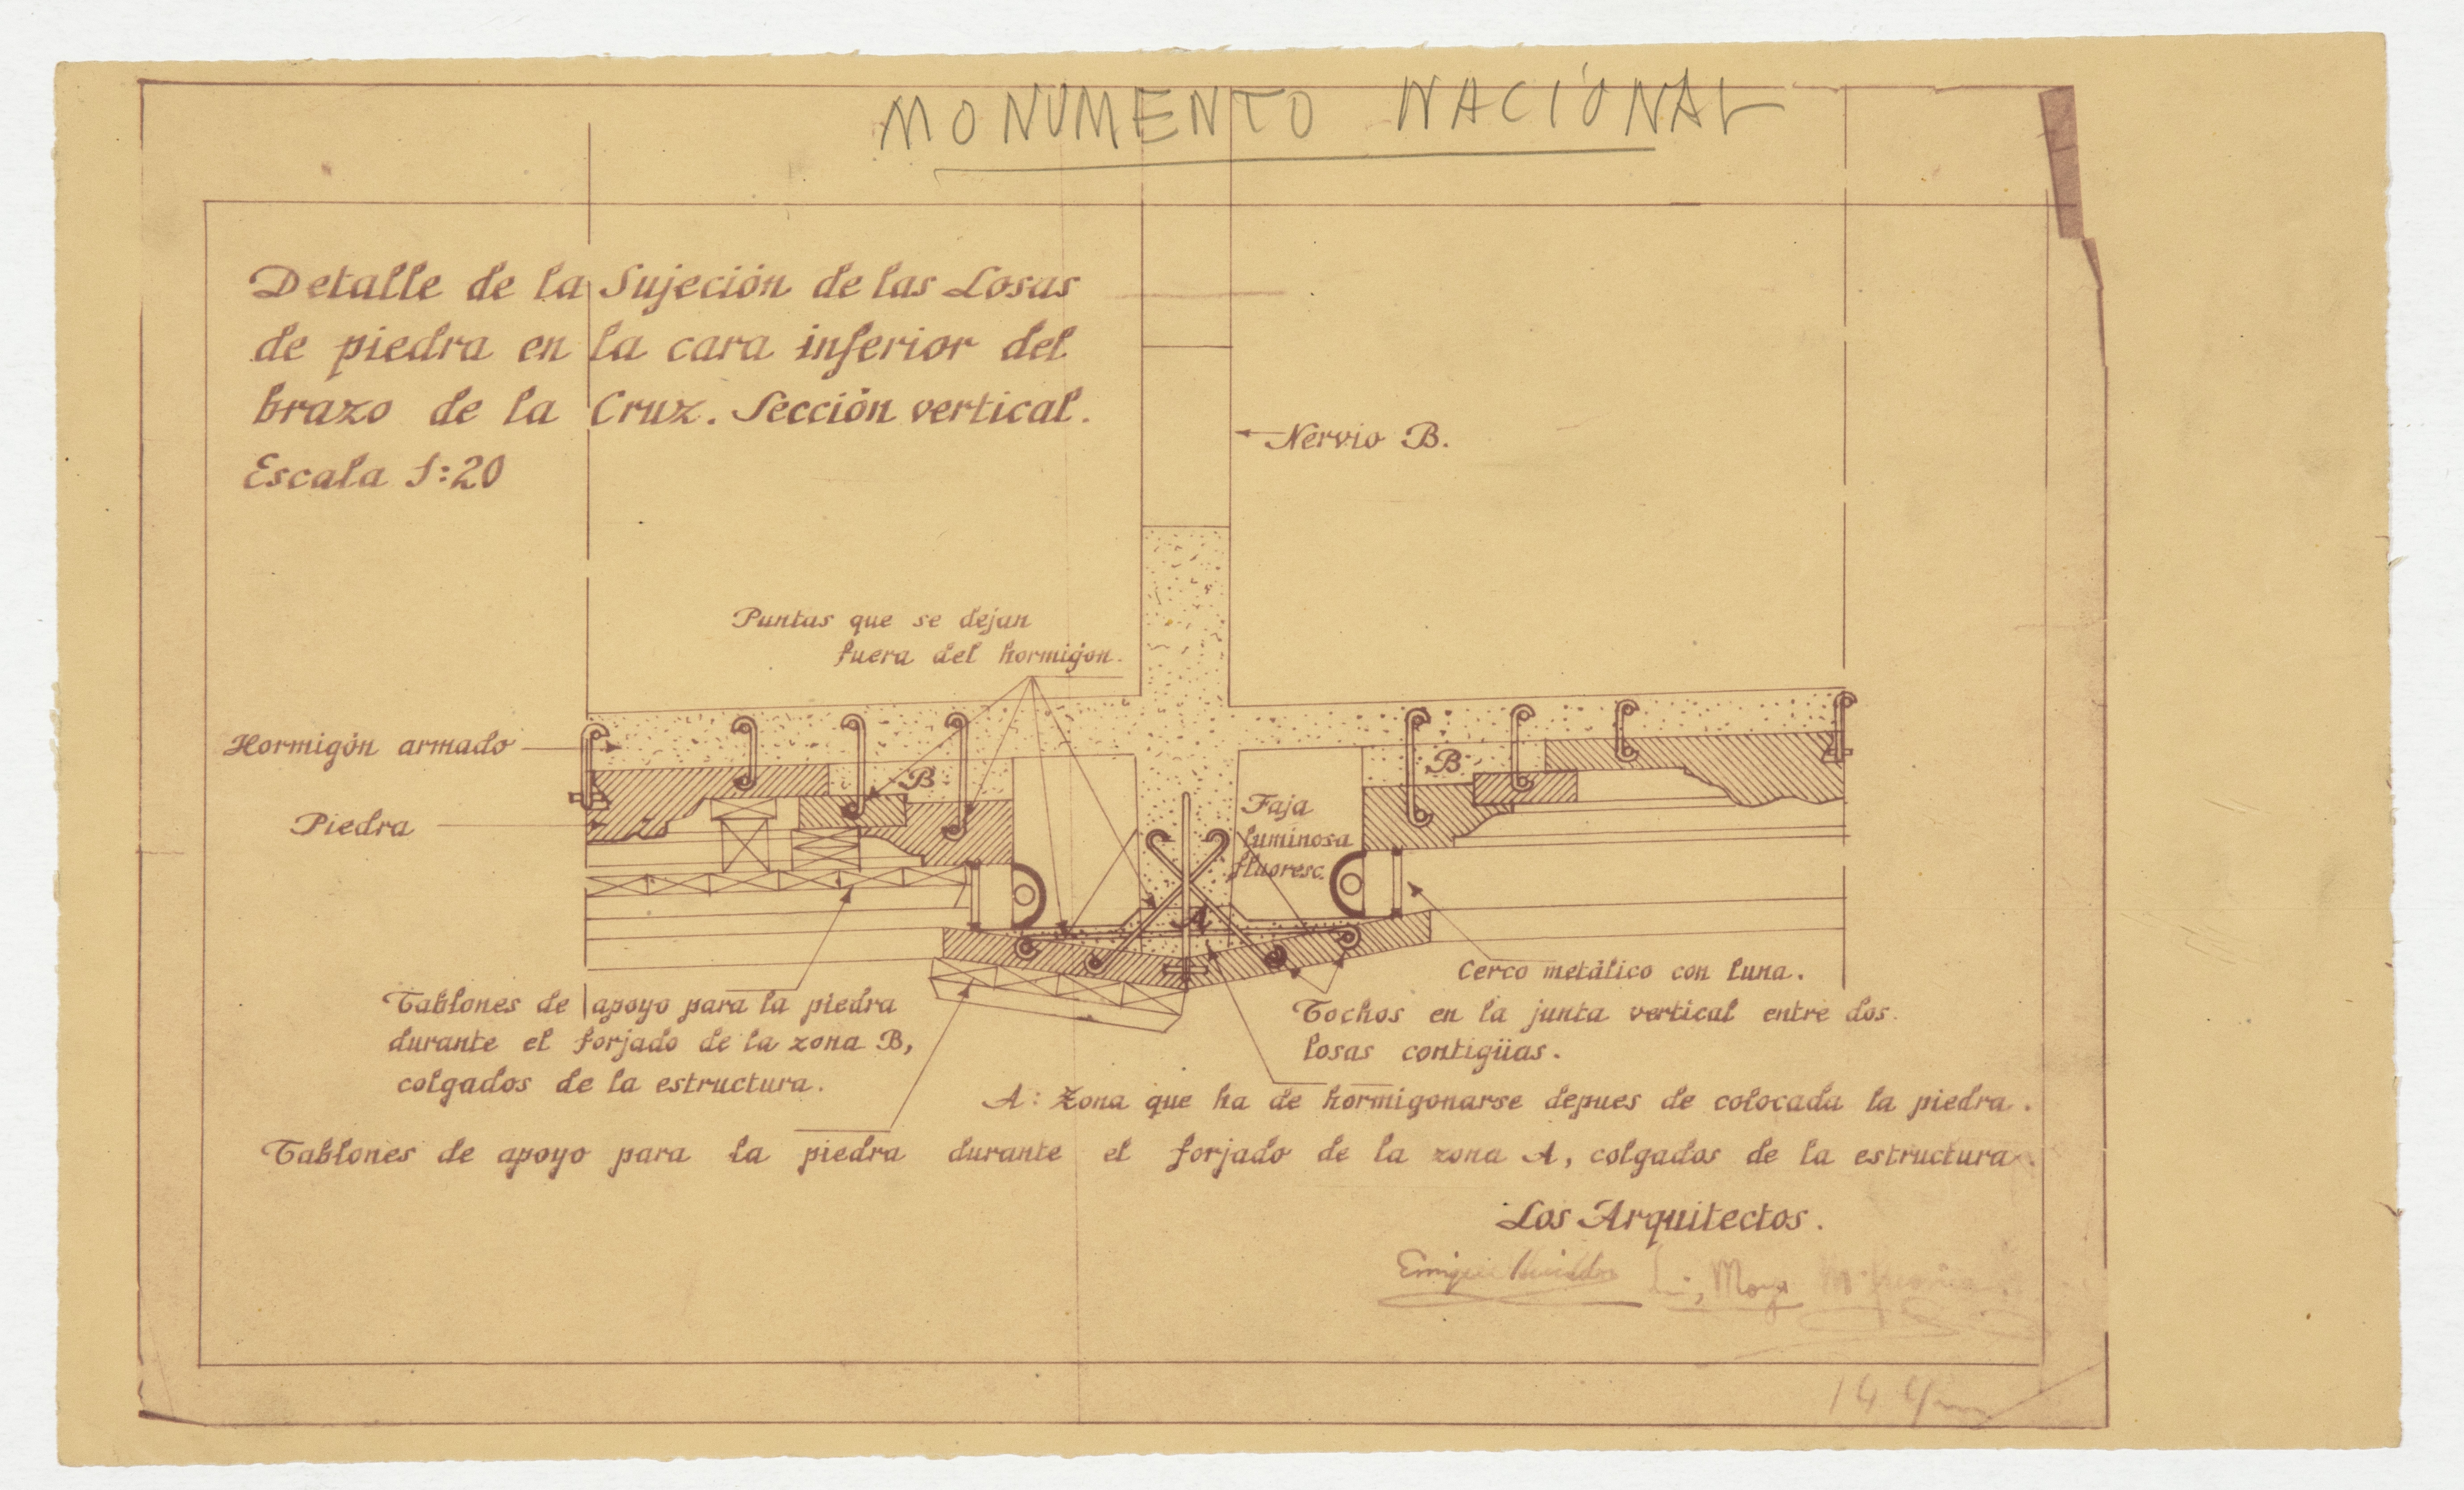 MONUMENTO NACIONAL
Detalle de la Sujeción de las Losas
de piedra en la cara inferior del
brazo de la Cruz. Sección vertical.
Escala 1:20
Nervio B.
Puntas que se dejan
fuera del hormigon.
Hormigón armado
Piedra
B
B
Faja
luminosa
fluoresc.
A
Cerco metálico con luna.
Tablones de apoyo para la piedra
durante el forjado de la zona B,
colgados de la estructura.
Tochos en la junta vertical entre dos
losas contigüas.
A: Zona que ha de hormigonarse depues de colocada la piedra.
Tablones de apoyo para la piedra durante el forjado de la zona A, colgados de la estructura.
Los Arquitectos.
Enrique Moya
14